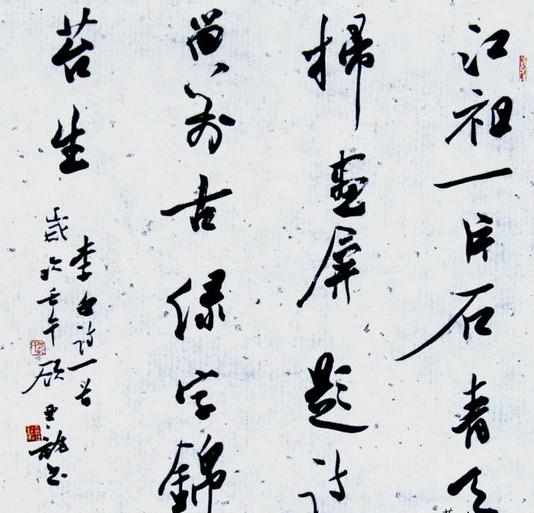 江祖一片石青天
掃畫屏題詩
留萬古綠字錦
苔生
李白詩一首
歲次壬午顧亞龍書